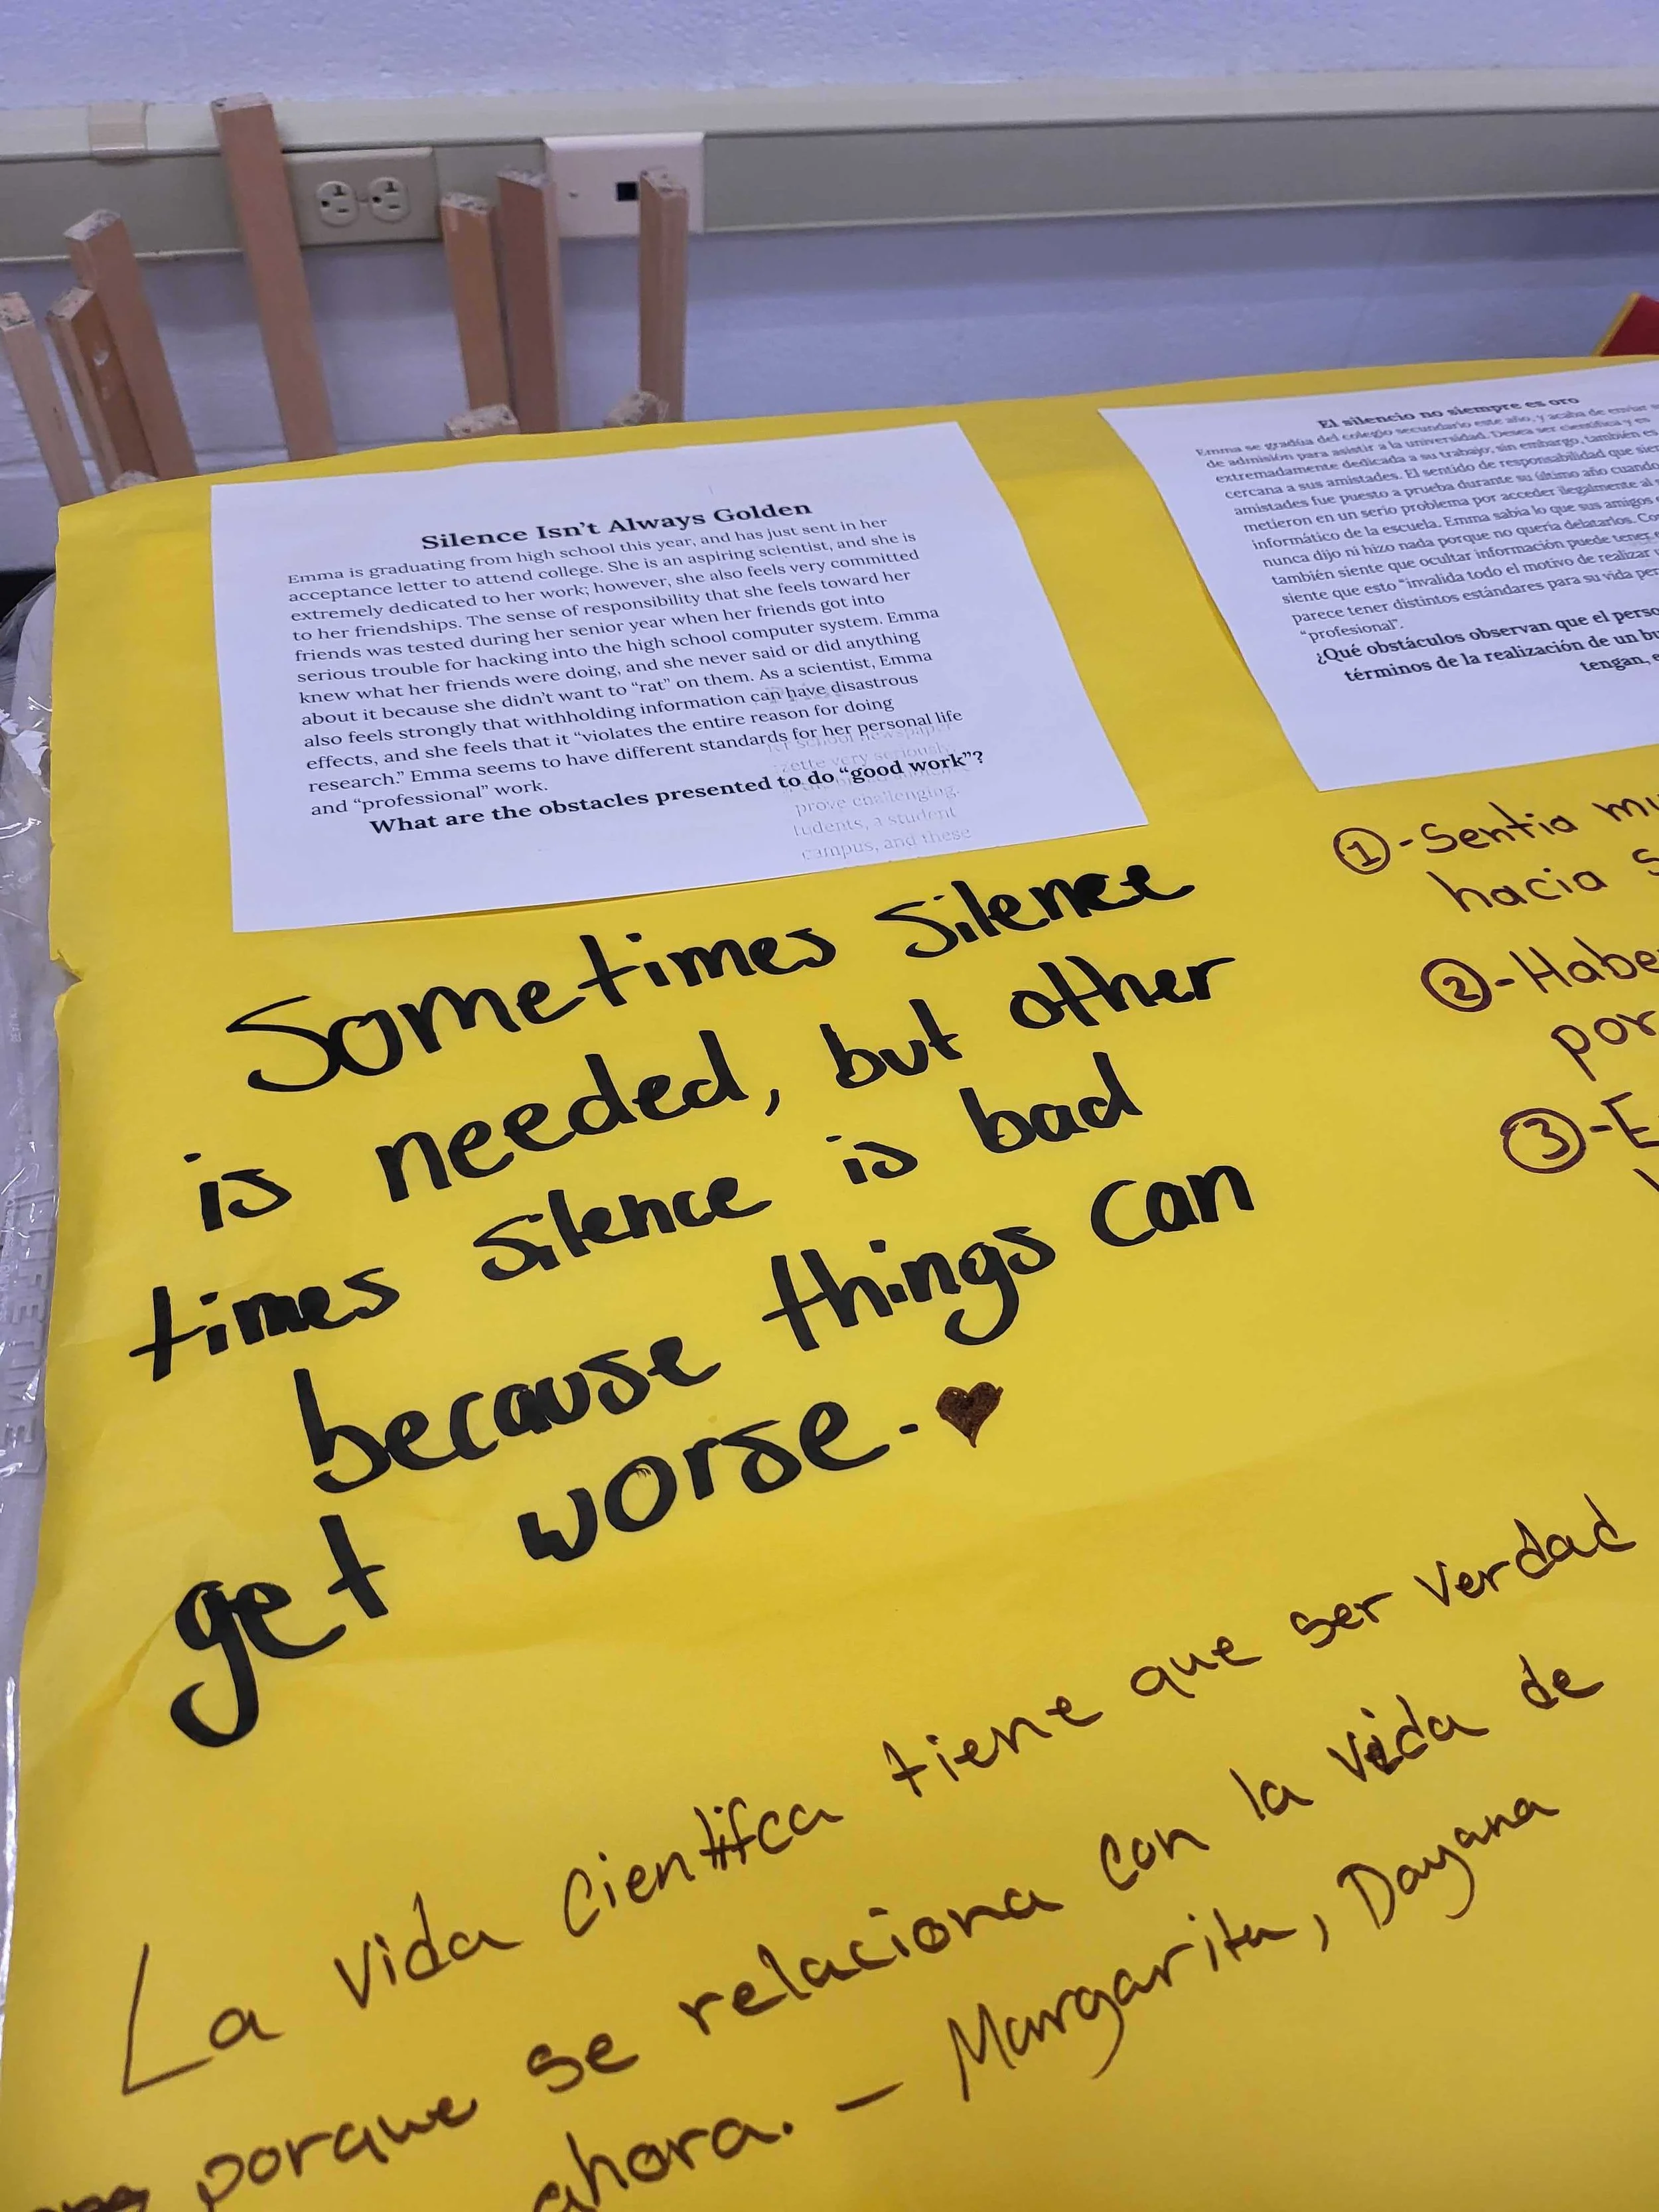 Silence Isn't Always Golden
Emma is graduating from high school this year, and has just sent in her
acceptance letter to attend college. She is an aspiring scientist, and she is
extremely dedicated to her work; however, she also feels very committed
to her friendships. The sense of responsibility that she feels toward her
friends was tested during her senior year when her friends got into
serious trouble for hacking into the high school computer system. Emma
knew what her friends were doing, and she never said or did anything
about it because she didn't want to "rat" on them. As a scientist, Emma
also feels strongly that withholding information can have disastrous
effects, and she feels that it "violates the entire reason for doing
research." Emma seems to have different standards for her personal life
and "professional" work.
What are the obstacles presented to do "good work"?
prove challenging.
tudents, a student
campus, and these
El silencio no siempre es oro
Emma se gradúa del colegio secundario este año, y acaba de enviar
de admisión para asistir a la universidad. Desea ser científica y es
extremadamente dedicada a su trabajo; sin embargo, también es
cercana a sus amistades. El sentido de responsabilidad que
amistades fue puesto a prueba durante su último año cuando
metieron en un serio problema por acceder ilegalmente al
informático de la escuela. Emma sabía lo que sus amigos
nunca dijo ni hizo nada porque no quería delatarlos.
también siente que ocultar información puede tener
siente que esto "invalida todo el motivo de realizar
parece tener distintos estándares para su vida
"profesional".
¿Qué obstáculos observan que el
términos de la realización de un
tengan,
Sometimes silence
is needed, but other
times silence is bad
because things can
get worse.
① - Sentia
hacia
②-
por
③-
La vida Cientifca tiene que ser verdad
porque se relaciona con la vida de
ahora. - Margarita, Dayana
LIFETIME